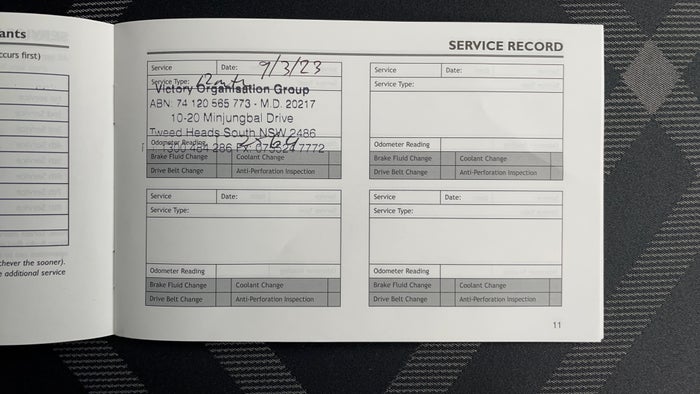 ants
ccurs first)
chever the sooner).
e additional service
SERVICE RECORD
Service Date: 9/3/23
Service Type:
Victory Organisation Group
ABN: 74 120 565 773 - M.D. 20217
10-20 Minjungbal Drive
Tweed Heads South NSW 2486
Odometer Reading
Brake Fluid Change Coolant Change
Drive Belt Change Anti-Perforation Inspection
Service Date:
Service Type:
Odometer Reading
Brake Fluid Change Coolant Change
Drive Belt Change Anti-Perforation Inspection
Service Date:
Service Type:
Odometer Reading
Brake Fluid Change Coolant Change
Drive Belt Change Anti-Perforation Inspection
Service Date:
Service Type:
Odometer Reading
Brake Fluid Change Coolant Change
Drive Belt Change Anti-Perforation Inspection
11